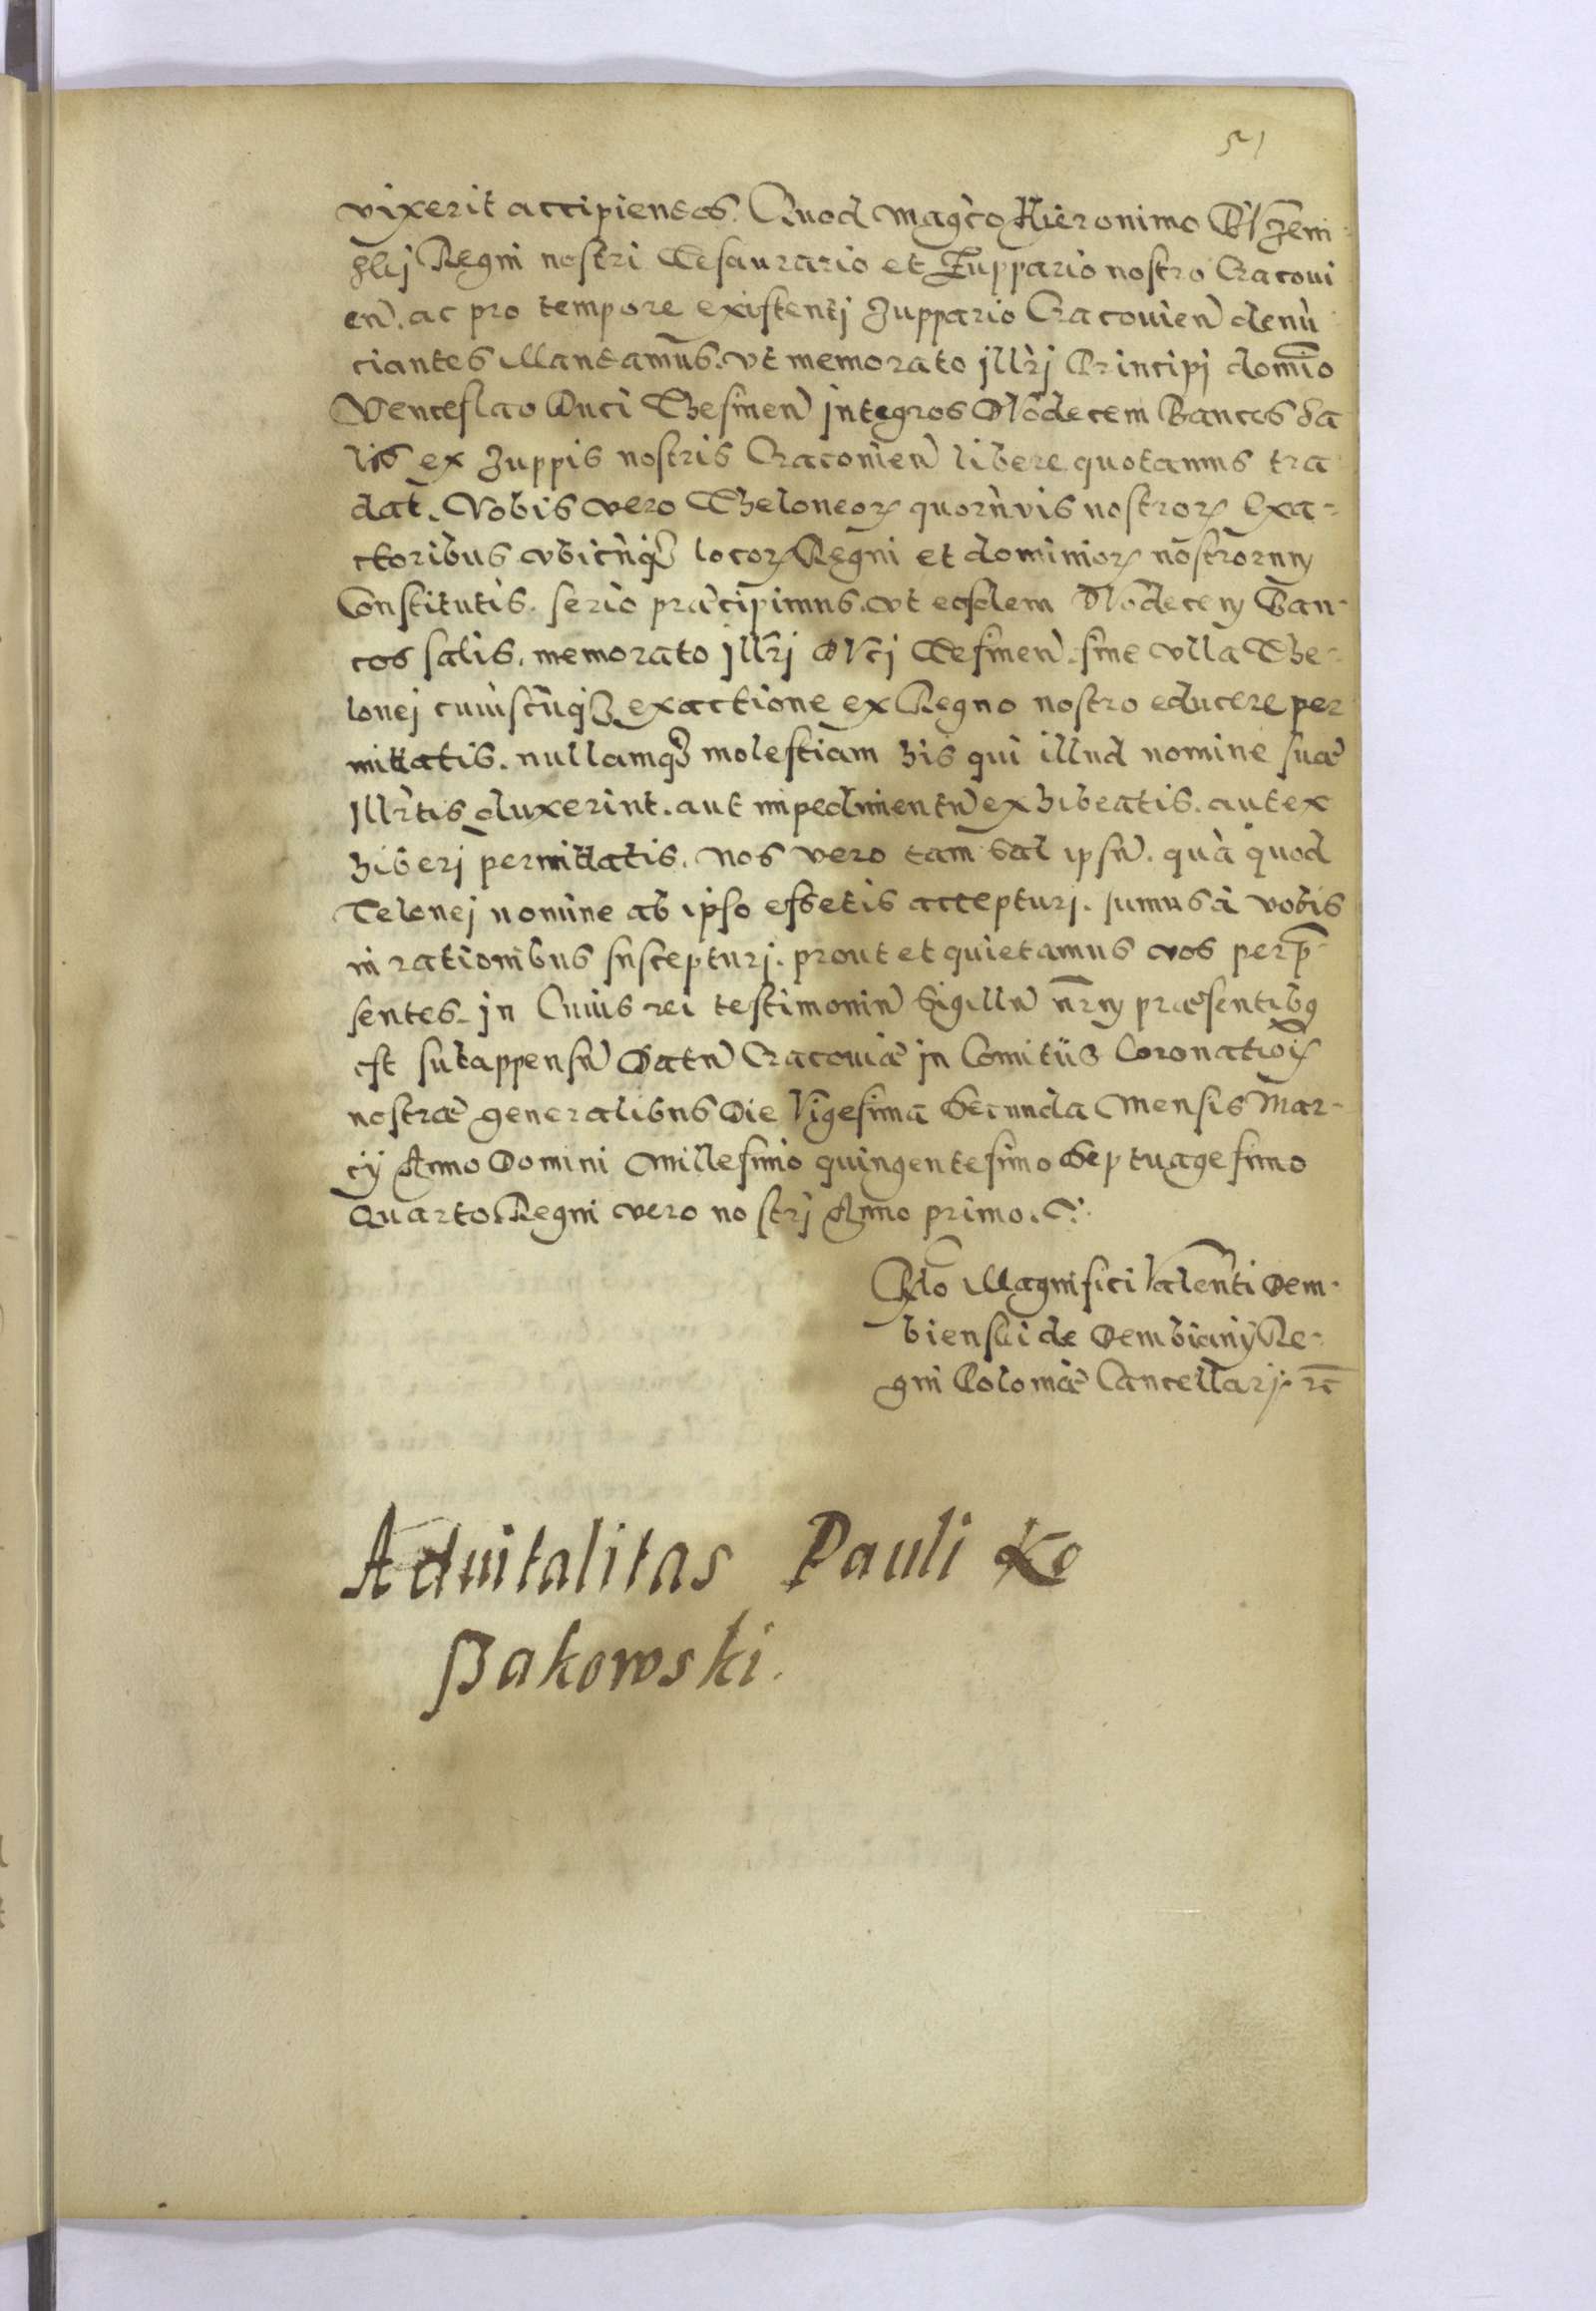 51
vixerit accipiendos. Quod Mag͠co Hieronimo Buzeni
skij Regni nostri Tesaurario et Zuppario nostro Cracoui
en̄. ac pro tempore existentj Zuppario Cracouien̄ denū
ciantes Mandamus. vt memorato jllr̄j Principj domīo
Venceslao Duci Thesinen̄ jntegros Dūodecem Bancos sa
lis ex Zuppis nostris Cracouien̄ libere quotannis tra
dat. Vobis vero Theloneoꝝ quorūvis nostroꝝ Exa-
ctoribus vbicūqꝫ locoꝝ Regni et dominioꝝ nostrorum
Constitutis. serio præcipimus. vt eosdem Dūodecem Ban-
cos salis. memorato jllr̄j Ducj Tesinen̄. sine vlla The-
lonej cuiuscūqꝫ exactione ex Regno nostro educere per
mittatis. nullamqꝫ molestiam his qui illud nomine suæ
jllr̄tis duxerint. aut impedimentū exhibeatis. aut ex
hiberj permittatis. nos vero tam sal ipsū. quā quod
Telonej nomine ab ipso essetis accepturj. sumus à vobis
in rationibus suscepturj. prout et quietamus vos per p̄
sentes. jn Cuius rei testimoniū Sigillū nr̄m præsentibꝰ
est subappensū Datū Cracouiæ jn Comitiis Coronatiōis
nostræ generalibus Die Vigesima Secunda Mensis Mar-
cij Anno Domini Millesimo quingentesimo Septuagesimo
Quarto. Regni vero nostrj Anno primo.
Ad Magnifici Valenti Dem-
bienski de Dembianij Re-
gni Poloniæ Cancellarij. rc̄
Aduitalitas Pauli Ko
Bakowski.